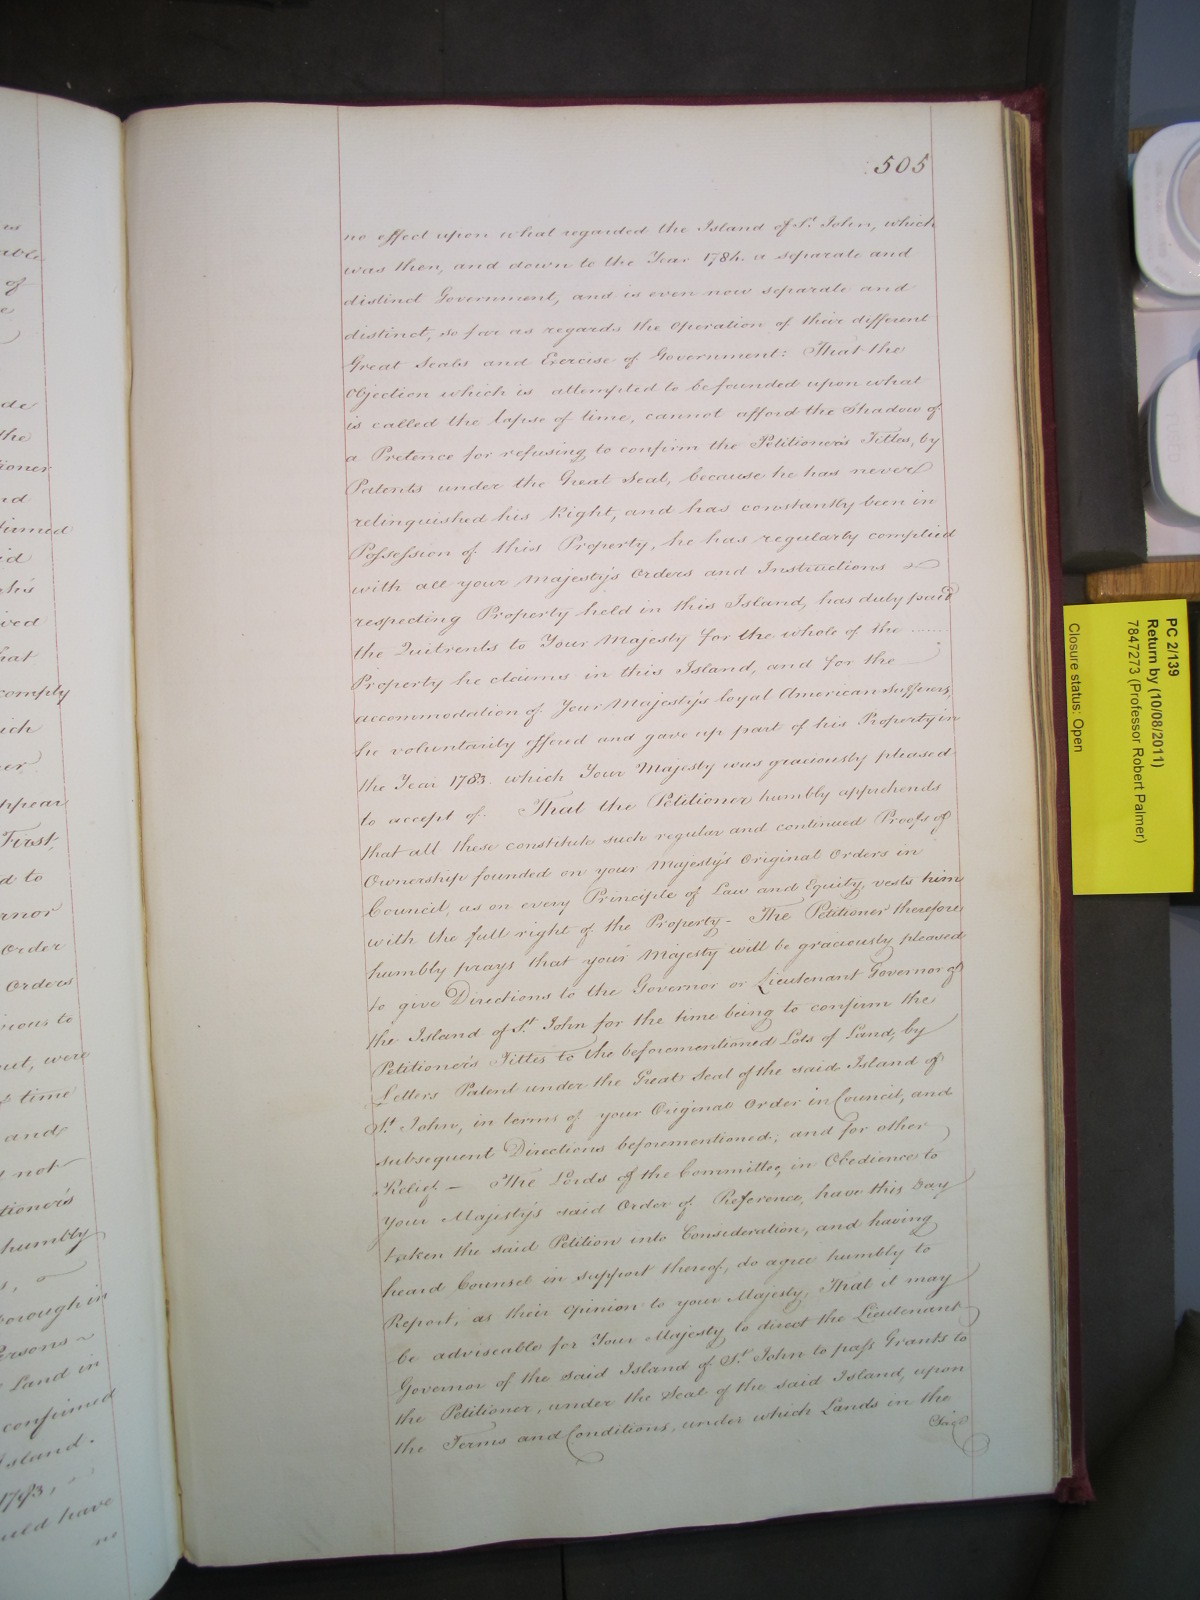 505
no effect upon what regarded the Island of St. John, which
was then, and down to the Year 1784. a separate and
distinct Government, and is even now separate and
distinct, so far as regards the Operation of their different
Great Seals and Exercise of Government: That the
Objection which is attempted to be founded upon what
is called the lapse of time, cannot afford the Shadow of
a Pretence for refusing to confirm the Petitioner's Titles, by
Patents under the Great Seal, because he has never
relinquished his Right, and has constantly been in
Possession of this Property, he has regularly complied
with all your Majesty's Orders and Instructions
respecting Property held in this Island, has duly paid
the Quitrents to Your Majesty for the whole of the
Property he claims in this Island, and for the
accommodation of Your Majesty's loyal American Sufferers,
he voluntarily offered and gave up part of his Property in
the Year 1783. which Your Majesty was graciously pleased
to accept of. That the Petitioner humbly apprehends
that all these constitute such regular and continued Proofs of
Ownership founded on your Majesty's Original Orders in
Council, as on every Principle of Law and Equity, vests him
with the full right of the Property – The Petitioner therefore
humbly prays that your Majesty will be graciously pleased
to give Directions to the Governor or Lieutenant Governor of
the Island of St. John for the time being to confirm the
Petitioner's Titles to the beforementioned Lots of Land, by
Letters Patent under the Great Seal of the said Island of
St. John, in terms of your Original Order in Council, and
subsequent Directions beforementioned; and for other
Relief. — The Lords of the Committee, in Obedience to
your Majesty's said Order of Reference, have this Day
taken the said Petition into Consideration, and having
heard Counsel in support thereof, do agree humbly to
Report, as their opinion to your Majesty, That it may
be adviseable for Your Majesty, to direct the Lieutenant
Governor of the said Island of St. John to pass Grants to
the Petitioner, under the Seal of the said Island, upon
the Terms and Conditions, under which Lands in the
able
of
the
comply
appear
First,
d to
Order
Orders
ious to
out, were
time
and
not
humbly
Land in
confirmed
Island.
have
PC 2/139
Return by (10/08/2011)
7847273 (Professor Robert Palmer)
Closure status: Open